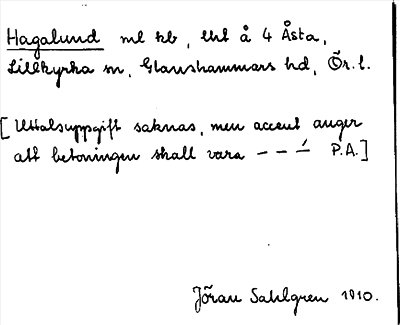 Hagalund ml kb, utt å 4 Åsta,
Lillkyrka sn, Glanshammars hd, Ör. l.
[Uttalsuppgift saknas, men accent anger
att betoningen skall vara – – –́ P.A.]
Jöran Sahlgren 1910.